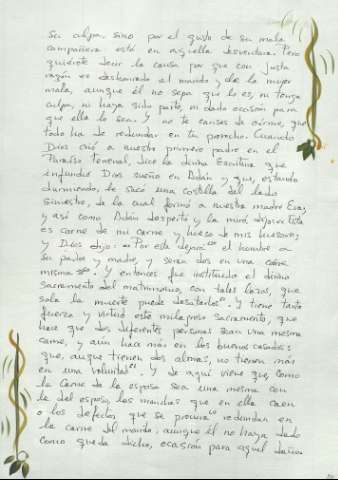 su culpa, sino por el gusto de su mala
compañera está en aquella desventura. Pero
quiérote decir la causa por que con justa
razón es deshonrado el marido de la mujer
mala, aunque él no sepa que lo es, ni tenga
culpa, ni haya sido parte, ni dado ocasión para
que ella lo sea. Y no te canses de oírme, que
todo ha de redundar en tu provecho. Cuando
Dios crió a nuestro primero padre en el
Paraíso terrenal, dice la divina Escritura que
infundió Dios sueño en Adán y que, estando
durmiendo, le sacó una costilla del lado
siniestro, de la cual formó a nuestra madre Eva;
y así como Adán despertó y la miró, dijo: Esta
es carne de mi carne y hueso de mis huesos;
y Dios dijo: "Por esta dejará el hombre a
su padre y madre, y serán dos en una carne
misma". Y entonces fue instituido el divino
sacramento del matrimonio, con tales lazos, que
sola la muerte puede desatarlos. Y tiene tanta
fuerza y virtud este milagroso sacramento, que
hace que dos diferentes personas sean una mesma
carne, y aún hace más en los buenos casados:
que, aunque tienen dos almas, no tienen más
en una voluntad. Y de aquí viene que como
la carne de la esposa sea una mesma con
la del esposo, las manchas que en ella caen
o los defectos que se procura redundan en
la carne del marido, aunque él no haya dado
como queda dicho, ocasión para aquel daño.